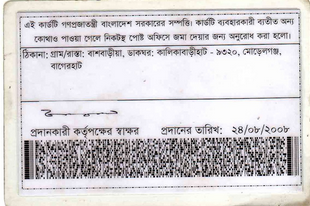 এই কার্ডটি গণপ্রজাতন্ত্রী বাংলাদেশ সরকারের সম্পত্তি। কার্ডটি ব্যবহারকারী ব্যতীত অন্য
কোথাও পাওয়া গেলে নিকটস্থ পোষ্ট অফিসে জমা দেয়ার জন্য অনুরোধ করা হলো।
ঠিকানা: গ্রাম/রাস্তা: বাশবাড়ীয়া, ডাকঘর: কালিকাবাড়ীহাট - ৯৩২০, মোড়েলগঞ্জ,
বাগেরহাট
প্রদানকারী কর্তৃপক্ষের স্বাক্ষর প্রদানের তারিখ: ২৪/০৮/২০০৮